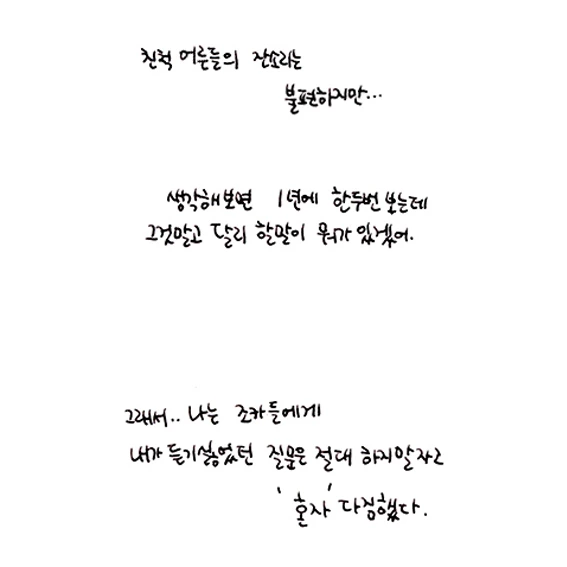 친척 어른들의 잔소리는
불편하지만...
생각해보면 1년에 한두번 보는데
그것말고 달리 할말이 뭐가 있겠어.
그래서.. 나는 조카들에게
내가 듣기싫었던 질문은 절대 하지말자고
'혼자' 다짐했다.